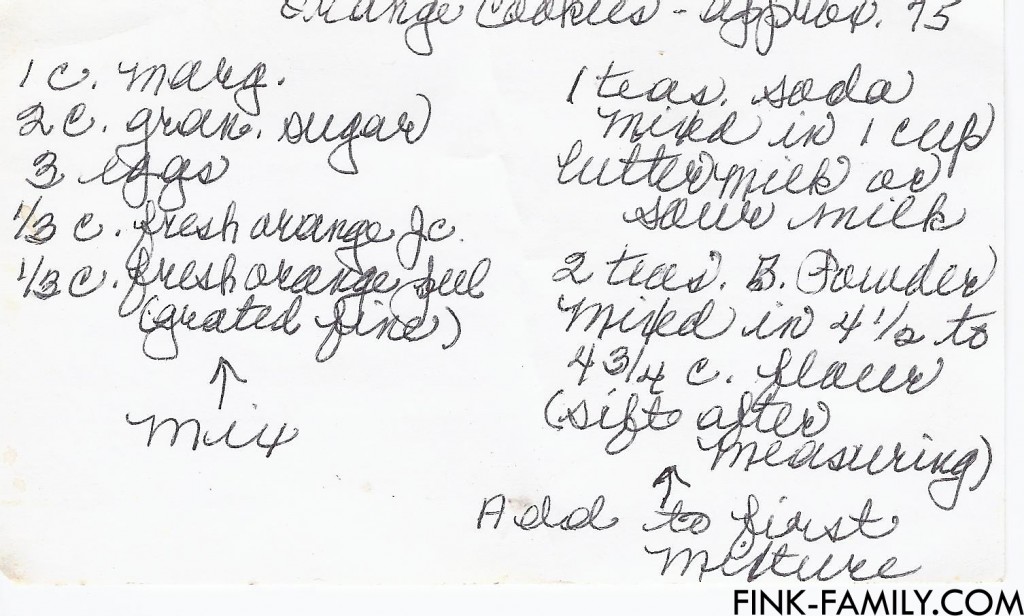 Orange Cookies - approx. 75
1 c. marg.
2 c. gran. sugar
3 eggs
1/3 c. fresh orange Jc.
1/3 c. fresh orange peel
(grated fine)
↑
Mix
1 teas. soda
mixed in 1 cup
buttermilk or
sour milk
2 teas. B. Powder
mixed in 4 1/2 to
4 3/4 c. flour
(sift after
measuring)
↑
Add to first
mixture
FINK-FAMILY.COM